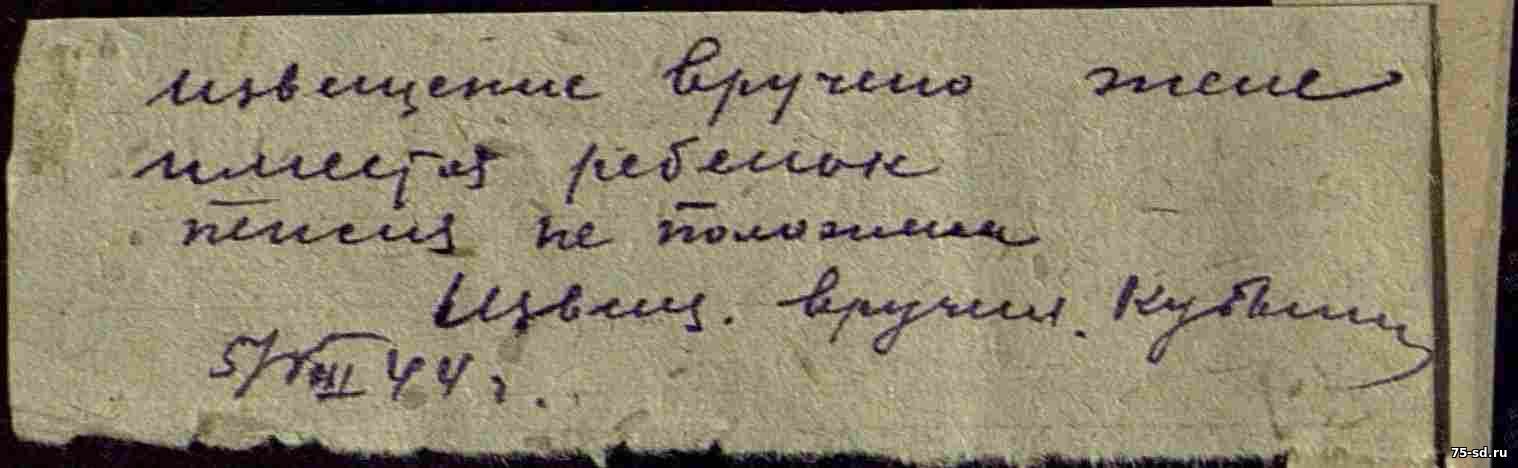 извещение вручено жене
имеется ребенок
пенсия не положена
Извещ. вручил
5/VIII 44 г.
75-sd.ru